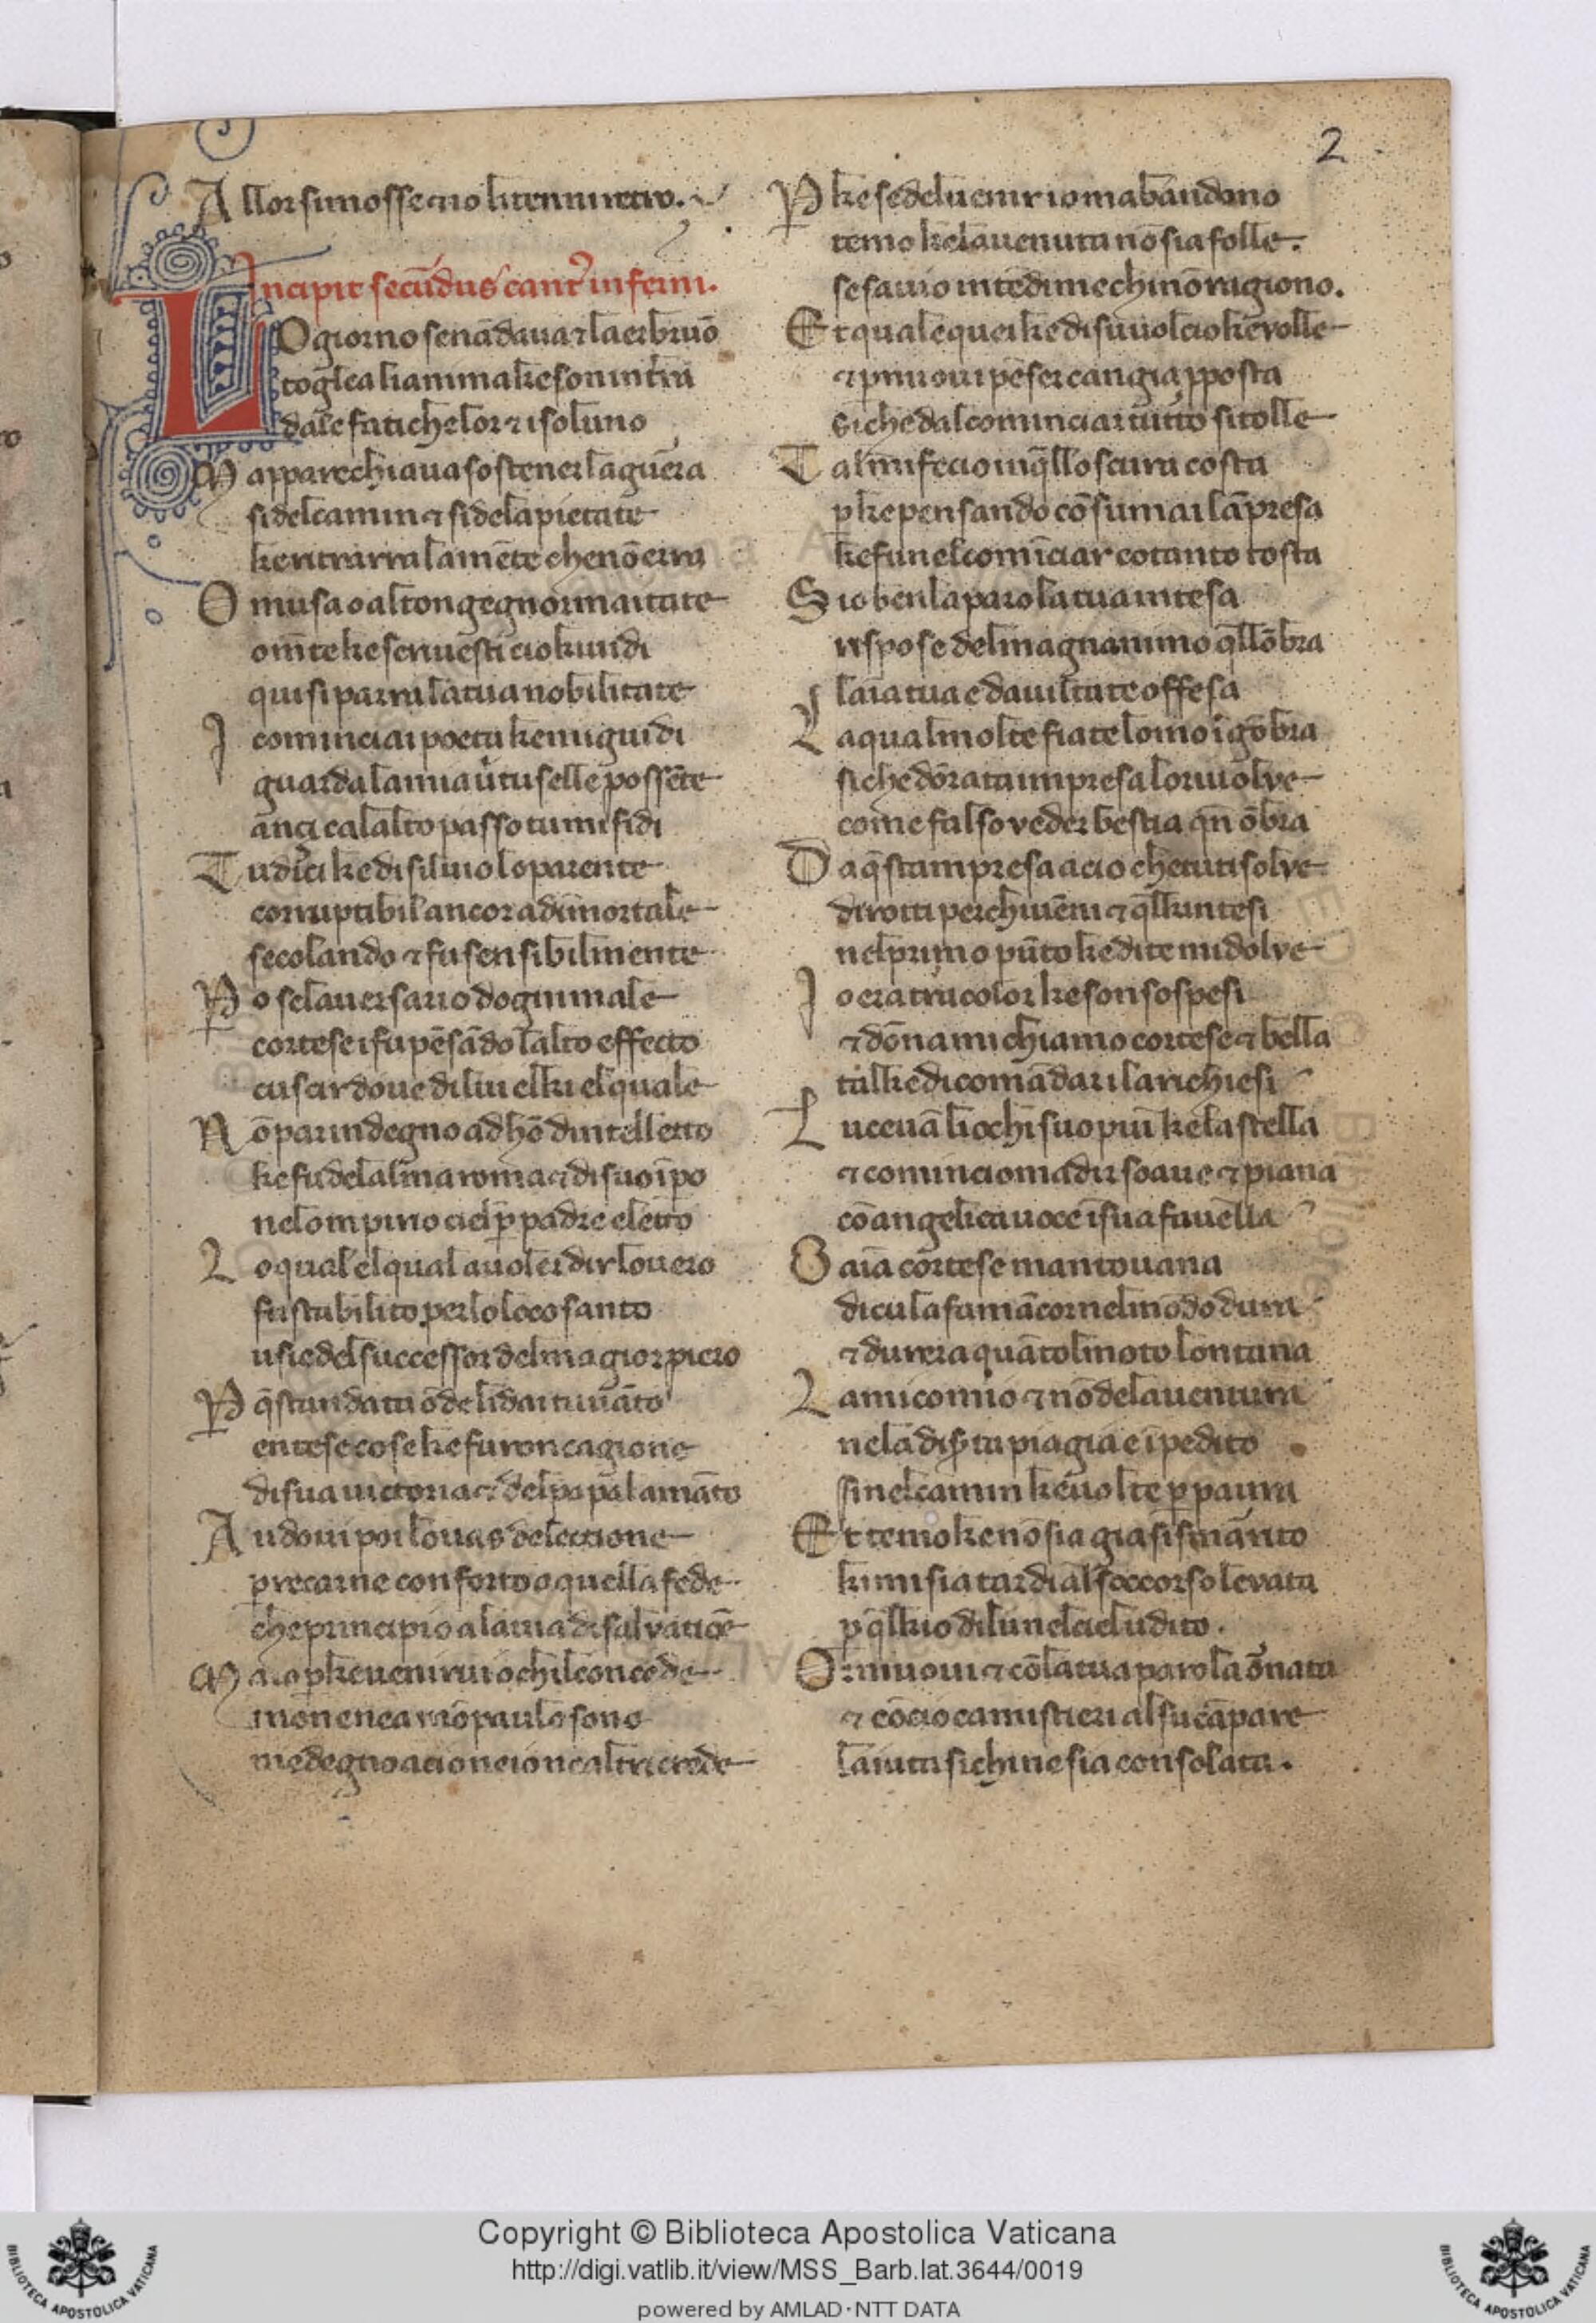 2
Allor si mosse e io li tenni retro.
Incipit secūdus cant' inferni.
LO giorno senādava ⁊ laer bruō
toglea li animali ke son in tr̄ra
dale fatiche lor ⁊ i sol uno
Mapparechiava sostener la guer̄a
si del camin ⁊ si dela pietate
ke ritrarra la mēte che nō erra
O musa o alto ngegno or maitate
o mīte ke scrivesti cio ki vidi
qui si parra la tua nobilitate
I cominciai poeta ke mi guidi
guarda la mia v̄tu sellę possēte
anci cal alto passo tu mi fidi
Tu dici ke di silvio lo parente
corruptibil ancora ad īmortale
secolo ando ⁊ fu sensibilmente
Po se laversario dogni male
cortese i fu pēsādo lalto effecto
cuscir dovę di lui el ki el quale
Nō par indegno ad hō dintelletto
ke fu delalma roma ⁊ di suo īpo
nelompirio ciel p̄ padre eletto
Lo qual el qual a voler dir lo vero
fu stabilito per lo loco santo
u siede l successor del magior piero
P q̄sta ndata ōde li dai tu vāto
entese cose ke furon cagione
di sua victoria ⁊ del papal amāto
Andovi poi lo vas delectione
p recarne conforto a quella fede
che principio ala via di salvatiōe
Ma io p ke venirvi o chil concede
mon enea nō paulo sono
me degno a cio ne io ne altri crede
P ke se del venir io mabandono
temo ke la venuta nō sia folle.
se savio intēdi me chi nō ragiono.
Et quale quei ke disvuol cio ke volle
⁊ p nuovi pēser cangia pposta
si che dal cominciar tutto si tolle
Tal mi fecio in q̄llo scura costa
p ke pensando cōsumai lāpresa
ke fu nel comīciar cotanto tosta
S io ben la parola tua intesa
rispose del magnanimo q̄llōbra
laīa tua e da viltate offesa
La qual molte fiate lomo īgōbra
si che dōrata impresa lo rivolve
come falso veder bestia qn̄ ōbra
Da q̄sta mpresa acio che tu ti solve
dirotti perchi vēni ⁊ q̄l ki ntesi
nel primo pūto ke di te mi dolve
Io era tra color ke son sospesi
⁊ dōna mi chiamo cortese ⁊ bella
tal ke di comādar i la richiesi
Luceuā li ochi suo piu ke la stella
⁊ comincio ma dir soave ⁊ piana
cō angelica voce ī sua favella
O aīa cortese mantouana
di cui la fama ācor nel mōdo dura
⁊ durera quāto l moto lontana
Lamico mio ⁊ nō dela ventura
nela dis̄ta piagia e īpedito
si nel camin ke volte p paura
Et temo ke nō sia gia si smarrito
ki mi sia tardi al soccorso levata
p q̄l kio di lui nel ciel udito.
Or muovi ⁊ cō la tua parola ōnata
⁊ cō cio ca mistieri al su cāpare
laiuta si chi ne sia consolata.
Copyright © Biblioteca Apostolica Vaticana
http://digi.vatlib.it/view/MSS_Barb.lat.3644/0019
powered by AMLAD·NTT DATA
BIBLIOTECA APOSTOLICA VATICANA
BIBLIOTECA APOSTOLICA VATICANA